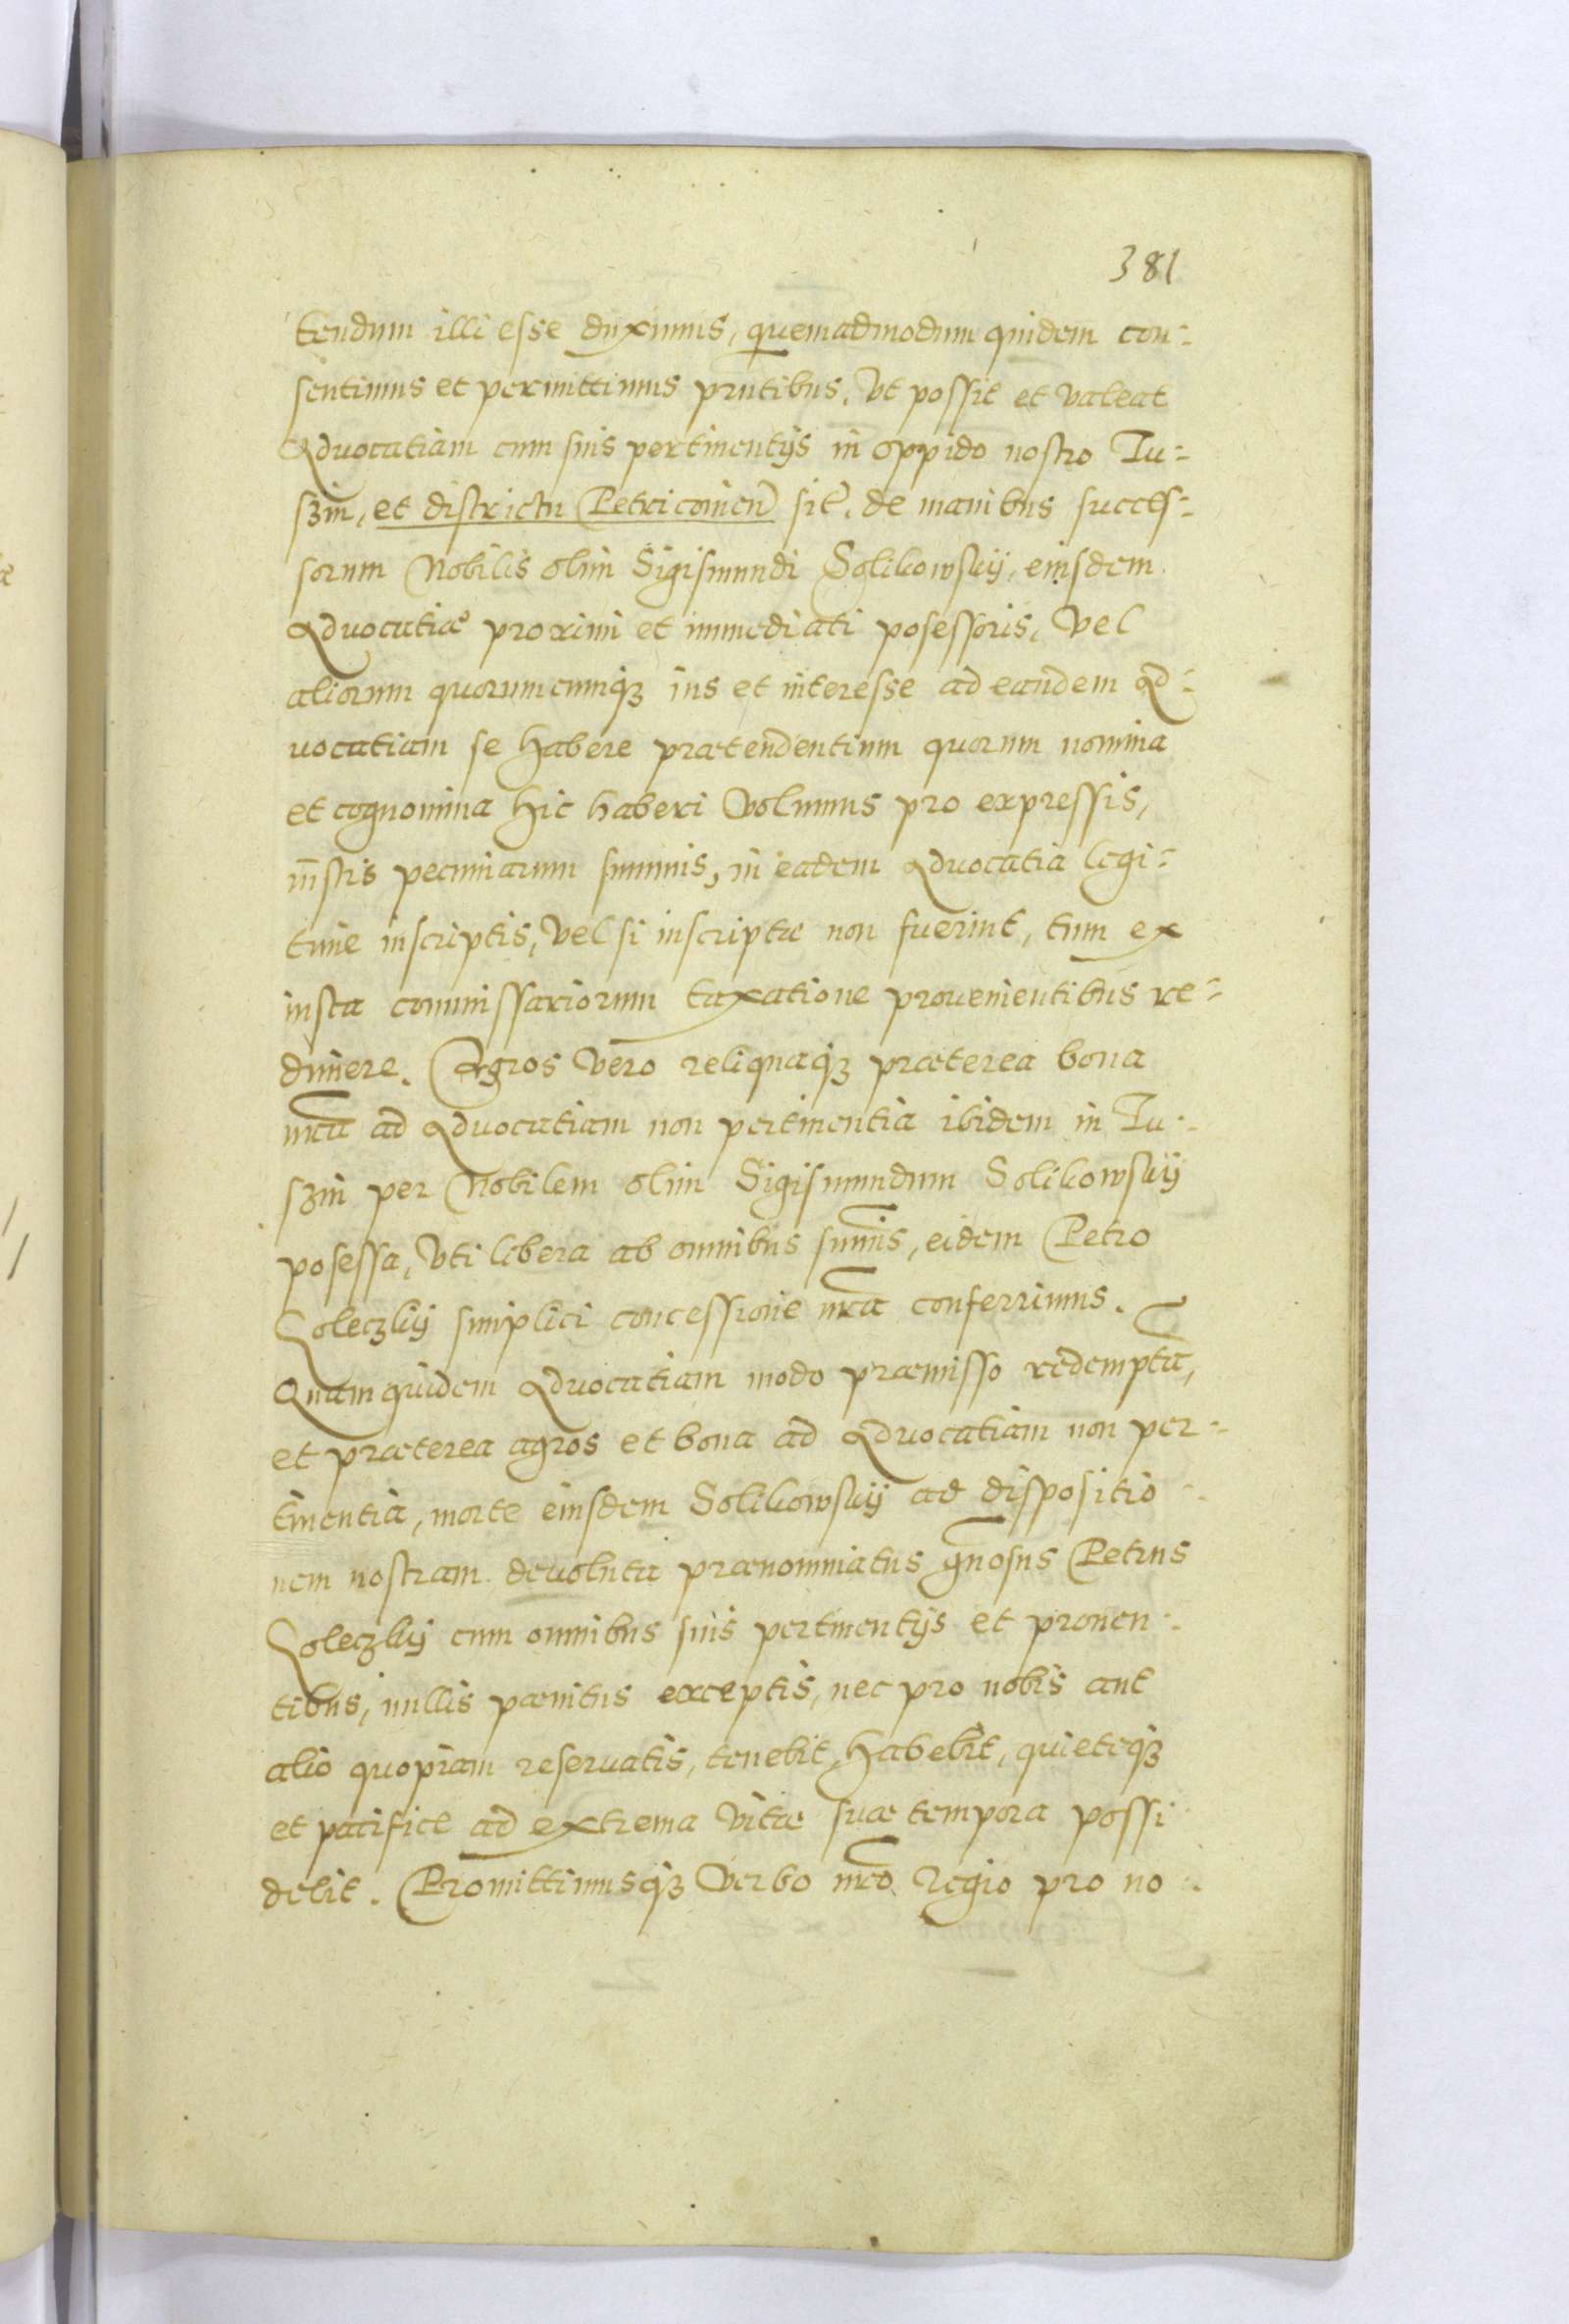 381
tendum illi esse duximus, quemadmodum quidem con-
sentimus et permittimus pntibus. Vt possit et valeat
Advocatiam cum suis pertinentijs in oppido nostro Tu-
szin, et districtu Petricouien sit. de manibus succes-
sorum Nobilis olim Sigismundi Solikowskij, eiusdem
Advocatiæ proximi et immediati posessoris, Vel
aliorum quorumcumqz ius et interesse ad eandem Ad-
uocatiam se habere prætendentium quorum nomina
et cognomina hic haberi Volumus pro expressis,
iustis pecuniarum summis, in eadem Advocatia legi-
time inscriptis, Vel si inscriptæ non fuerint, tum ex
iusta commissariorum taxatione prouenientibus re-
dimere. Agros Vero reliquaqz præterea bona
nra ad Advocatiam non pertinentia ibidem in Tu-
szin per Nobilem olim Sigismundum Solikowskij
posessa, Vti libera ab omnibus summis, eidem Petro
Goleczkij simplici concessione nra conferrimus.
Quamquidem Advocatiam modo præmisso redemptã,
et præterea agros et bona ad Advocatiam non per-
tinentia, morte eiusdem Solikowskij ad dispositio-
nem nostram deuoluta prænominatus gnosus Petrus
Goleczkij cum omnibus suis pertinentijs et prouen-
tibus, nullis pænitus exceptis, nec pro nobis aut
alio quopiam reseruatis, tenebit, habebit, quieteqz
et pacifice ad extrema vitæ suæ tempora possi
debit. Promittimusqz Verbo nro Regio pro no-